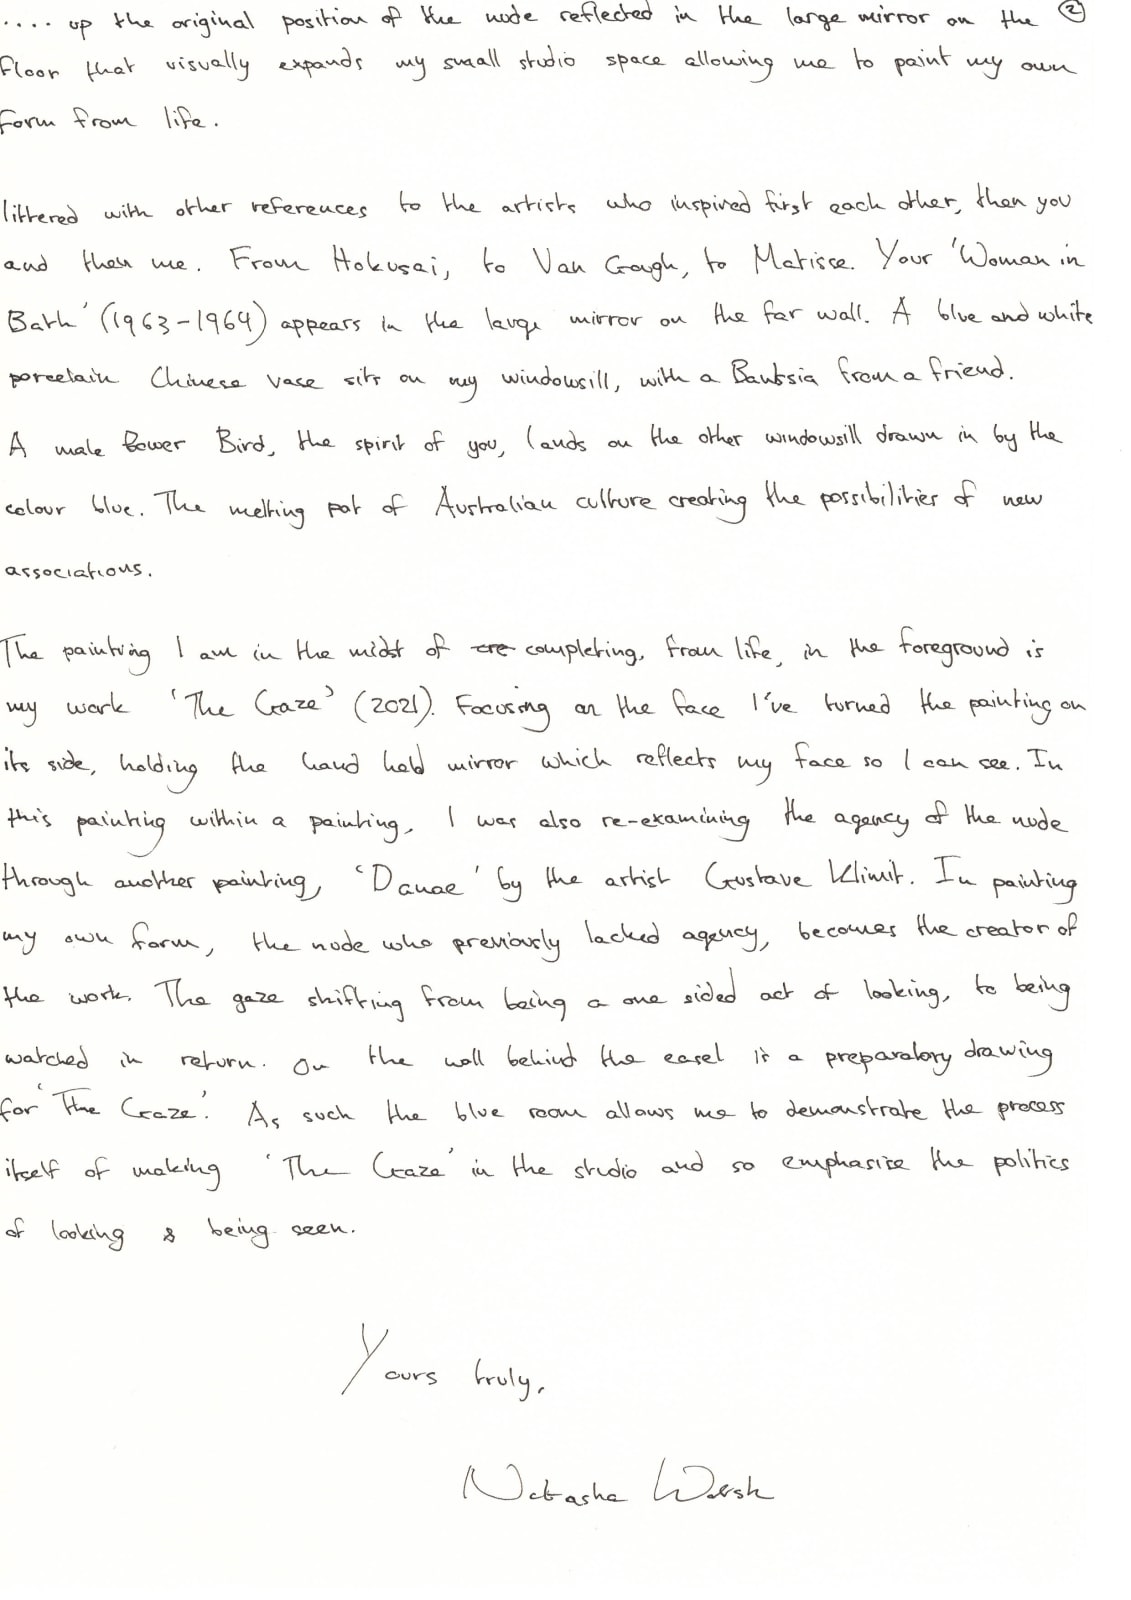 .... up the original position of the nude reflected in the large mirror on the ②
floor that visually expands my small studio space allowing me to paint my own
form from life.
littered with other references to the artists who inspired first each other, then you
and then me. From Hokusai, to Van Gough, to Matisse. Your 'Woman in
Bath' (1963-1964) appears in the large mirror on the far wall. A blue and white
porcelain Chinese vase sits on my windowsill, with a Banksia from a friend.
A male Bower Bird, the spirit of you, lands on the other windowsill drawn in by the
colour blue. The melting pot of Australian culture creating the possibilities of new
associations.
The painting I am in the midst of cre completing, from life, in the foreground is
my work 'The Gaze' (2021). Focusing on the face I've turned the painting on
its side, holding the hand held mirror which reflects my face so I can see. In
this painting within a painting, I was also re-examining the agency of the nude
through another painting, 'Danae' by the artist Gustave Klimit. In painting
my own form, the nude who previously lacked agency, becomes the creator of
the work. The gaze shifting from being a one sided act of looking, to being
watched in return. On the wall behind the easel is a preparatory drawing
for 'The Gaze'. As such the blue room allows me to demonstrate the process
itself of making 'The Gaze' in the studio and so emphasise the politics
of looking & being seen.
Yours truly,
Natasha Walsh